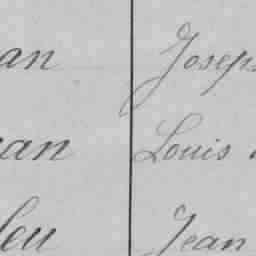 an Joseph
an Louis
leu Jean